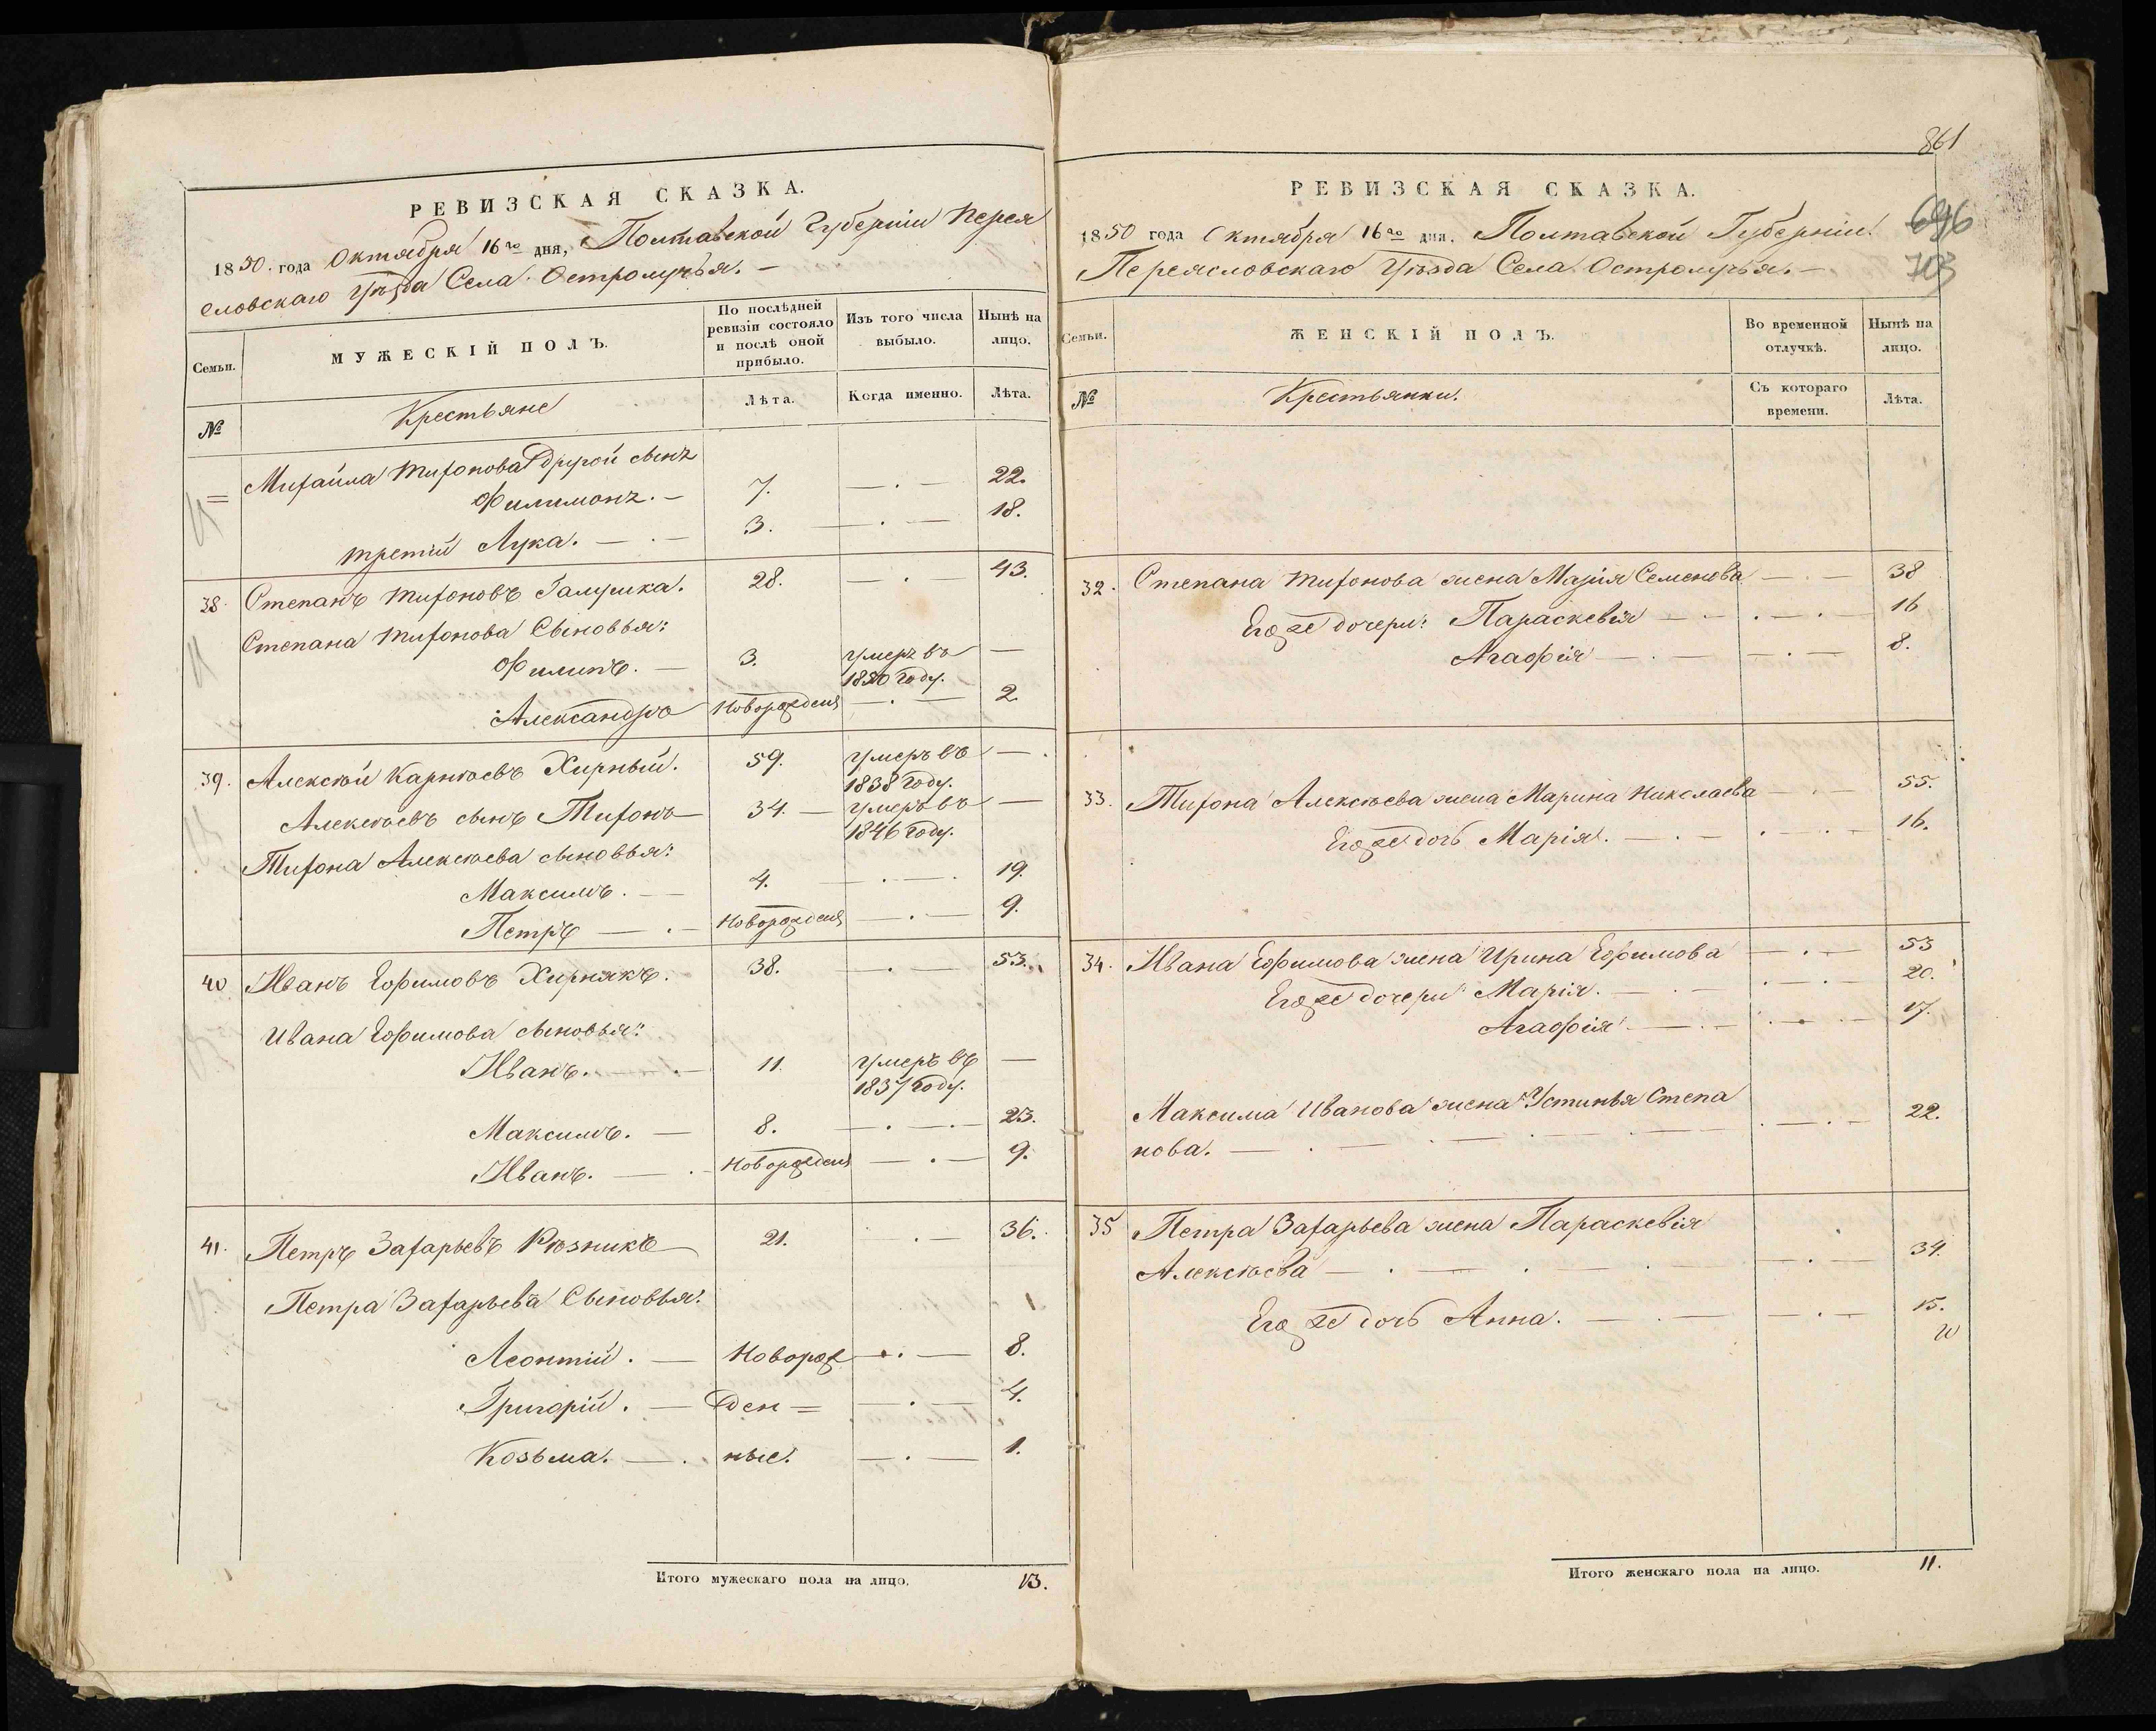 РЕВИЗСКАЯ СКАЗКА.
1850. года Октября 16го дня, Полтавской Губерніи Перея
словскаго Уѣзда Села Остролучья. –
Семьи.
МУЖЕСКІЙ ПОЛЪ.
По послѣдней ревизіи состояло и послѣ оной прибыло.
Изъ того числа выбыло.
Нынѣ на лицо.
№
Крестьяне
Лѣта.
Когда именно.
Лѣта.
= Михайла Тихонова другой сынъ
Филимонъ. – 7. — . — 22.
третій Лука. — . — 3. — . — 18.
38. Степанъ Тихоновъ Галушка. 28. — . — 43.
Степана Тихонова Сыновья:
Филипъ. — 3. умеръ въ —
1850 году.
Александръ Новорожден — . — 2.
39. Алексѣй Карнѣевъ Хирный. 59. умеръ въ — .
1838 году.
Алексѣевъ сынъ Тихонъ — 34. — умеръ въ —
1846 году.
Тихона Алексѣева сыновья:
Максимъ. — 4. — . — . 19.
Петръ — . — Новорожден — . — 9.
40 Иванъ Ефимовъ Хирнякъ. 38. — . — 53.
Ивана Ефимова сыновья:
Иванъ. — . — 11. умеръ въ —
1837 году.
Максимъ. — 8. — . — . — 23.
Иванъ. — . — Новорожден — . — 9.
41. Петръ Захарьевъ Рѣзникъ — 21. — . — 36.
Петра Захарьева Сыновья:
Леонтій. — Новорож — . — 8.
Григорій. — ден = — . — 4.
Козьма. — . ные. — . — 1.
Итого мужескаго пола на лицо. 13.
861
696
703
РЕВИЗСКАЯ СКАЗКА.
1850 года Октября 16го дня. Полтавской Губерніи.
Переясловскаго Уѣзда Села Остролучья. –
Семьи.
ЖЕНСКІЙ ПОЛЪ.
Во временной отлучкѣ.
Нынѣ на лицо.
№
Крестьянки.
Съ котораго времени.
Лѣта.
32. Степана Тихонова жена Марія Семенова — . — 38
Его же дочери: Параскевія — . — . — 16
Агафія — . — — . — 8.
33. Тихона Алексѣева жена Марина Николаева — . — 55.
Его же дочь Марія. — . — . — . — 16.
34. Ивана Ефимова жена Ирина Ефимова — . — 53
Его же дочери Марія. — . — . — . — 20.
Агафія — . — . — . — 17.
Максима Иванова жена Устинья Степа
нова. — . — . — . — . — . — 22.
35 Петра Захарьева жена Параскевія
Алексѣева — . — . — . — — . — 34.
Его же дочь Анна. — . — — . — 15.
Итого женскаго пола на лицо. 11.